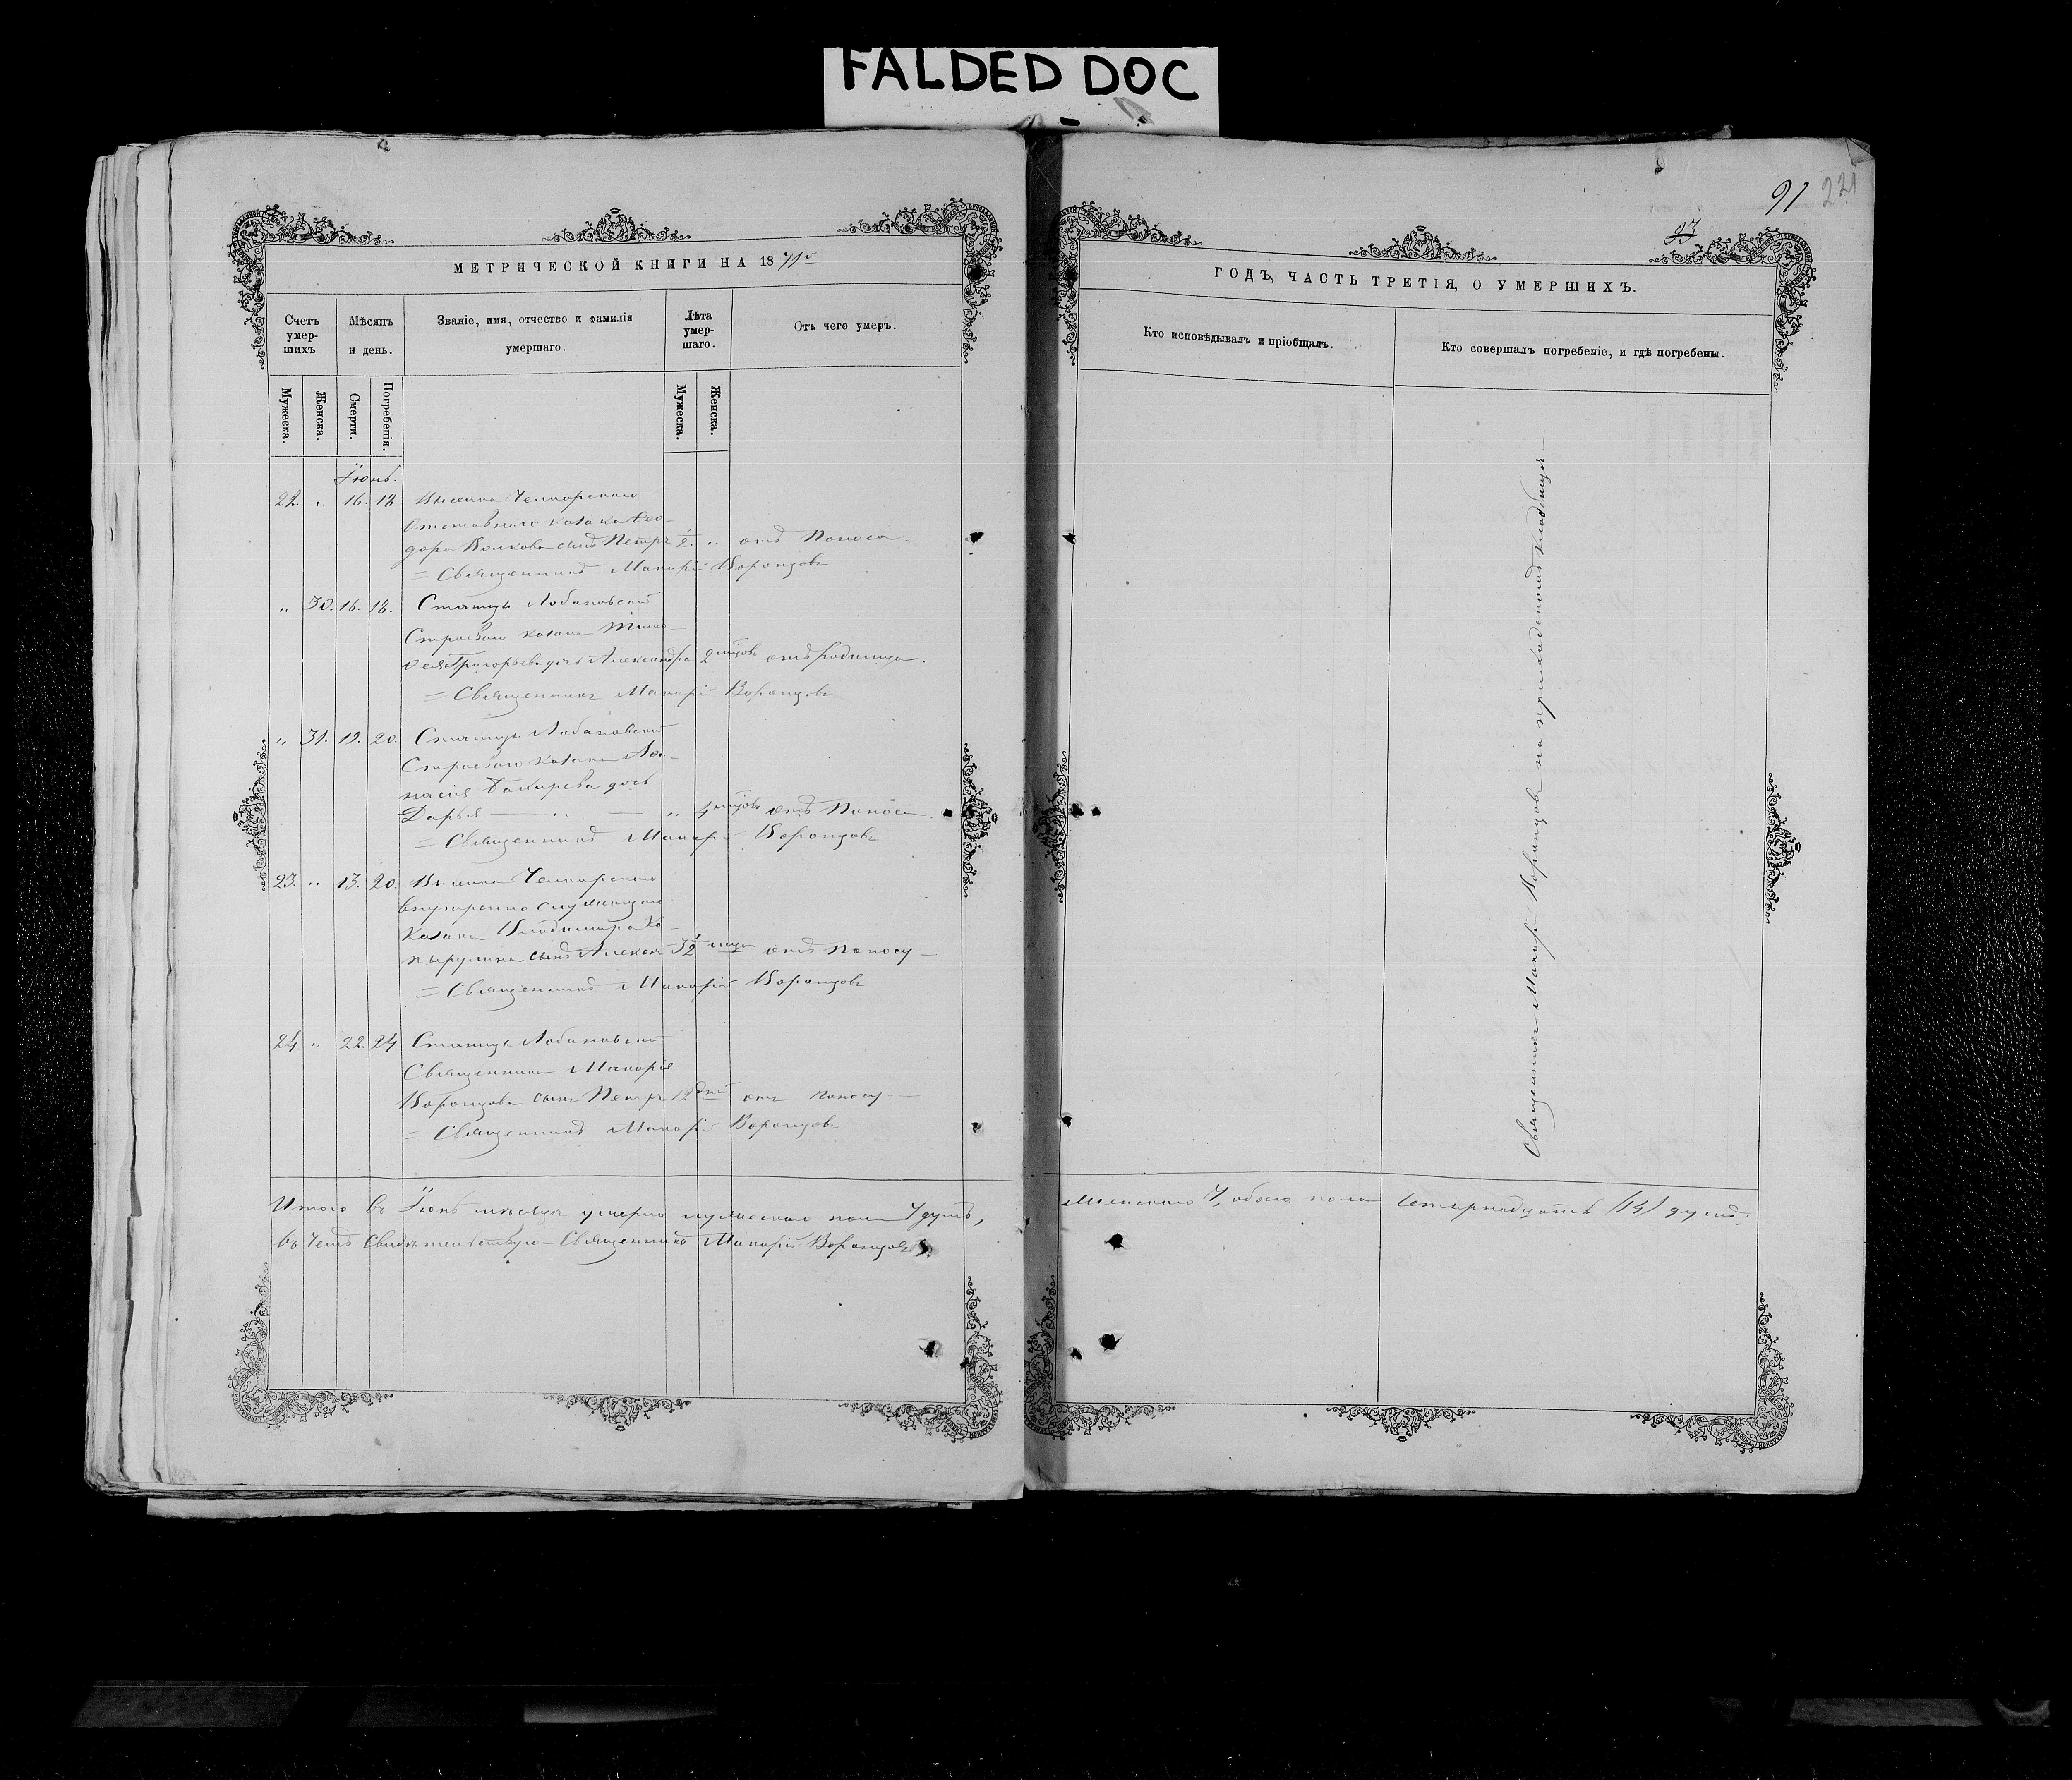 FALDED DOC
МЕТРИЧЕСКОЙ КНИГИ НА 1871
Счетъ умер-шихъ
Мѣсяцъ и день.
Званіе, имя, отчество и фамилія умершаго.
Лѣта умер-шаго.
Отъ чего умеръ.
Мужеска.
Женска.
Смерти.
Погребенія.
Мужеска.
Женска.
Іюнь.
22. " 16. 18.
Отставнаго казака Ѳео-
дора Волкова сынъ Петръ " отъ Поноса
= Священникъ Макарій Воронцовъ
" 30. 16. 18. Станицы Лобановской
Строеваго казака Тимо-
ѳея Григорьева дочь Александра 2 мцовъ отъ родимца.
= Священникъ Макарій Воронцовъ
" 31. 19. 20. Станицы Лобановской
Строеваго казака Аѳа-
насія дочь
Дарья — " — " 4 мцовъ отъ Поноса
= Священникъ Макарій Воронцовъ
23. " 13. 20.
внутренно служащаго
Казака Владимира
сынъ отъ поносу —
= Священникъ Макарій Воронцовъ
24. " 22. 24. Станицы Лобановской
Священника Макарія
Воронцова сынъ Петръ 12 дней отъ поносу —
= Священникъ Макарій Воронцовъ
Итого въ Іюнѣ мѣсяцѣ умерло мужеска пола 7 душъ,
въ чемъ свидѣтельствую Священникъ Макарій Воронцовъ.
91 221
93
ГОДЪ, ЧАСТЬ ТРЕТІЯ, О УМЕРШИХЪ.
Кто исповѣдывалъ и пріобщалъ.
Кто совершалъ погребеніе, и гдѣ погребены.
Священникъ Макарій Воронцовъ на приходскомъ кладбищѣ —
женскаго 7, обоего пола Четырнадцать (14) душъ.